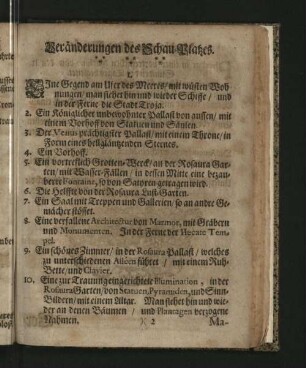 Veränderungen des Schau-Platzes.
1.
EIne Gegend am Ufer des Meeres/ mit wüsten Woh-
nungen/ man siehet hin und wieder Schiffe / und
in der Ferne die Stadt Troja.
2. Ein Königlicher unbewohnter Pallast von aussen/ mit
einem Vorhoff von Statuen und Säulen.
3. Der Venus prächtigster Pallast/ mit einem Throne/ in
Form eines hellgläntzenden Sternes.
4. Ein Vorhoff.
5. Ein vortrefflich Grotten-Werck/ an der Rosaura Gar-
ten/ mit Wasser-Fällen/ in dessen Mitte eine bezau-
berte Fontaine, so von Satyren getragen wird.
6. Die Helffte von der Rosaura Lust-Garten.
7. Ein Saal mit Treppen und Gallerien/ so an andre Ge-
mächer stösset.
8. Eine verfallene Architectur von Marmor, mit Gräbern
und Monumenten. In der Ferne der Hecate Tem-
pel.
9. Ein schönes Zimmer/ in der Rosaura Pallast/ welches
zu unterschiedenen Alléen führet / mit einem Ruh-
Bette/ und Clavier.
10. Eine zur Trauung eingerichtete Illumination, in der
Rosaura Garten/ von Statuen, Pyramiden, und Sinn-
Bildern/ mit einem Altar. Man siehet hin und wie-
der an denen Bäumen / und Plantagen verzogene
Nahmen.
)( 2
Ma-